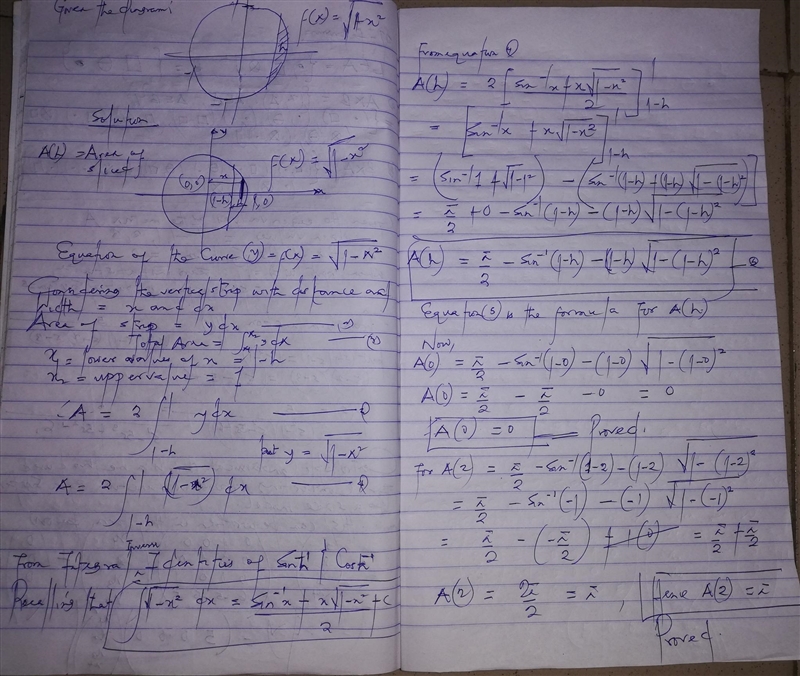 Given the diagram:
f(x) = √1-x²
Solution
A(h) = Area of
f(x) = √1-x²
(0,0)
x
(1-h)
1,0)
Equation of the Curve (y) = f(x) = √1-x²
Considering the vertical strip with distance and
width = x and dx
Area of strip = ydx
Total Area = ydx
x₁ = lower value of x = 1-h
x₂ = upper value = 1
∴ A = 2 ∫ 1 1-h y dx
put y = √1-x²
A = 2 ∫ 1 1-h (√1-x²) dx
From Integral Identities of Sin⁻¹ & Cos⁻¹
Recalling that ∫√1-x² dx = sin⁻¹x + x√1-x² + C
2
From equation
A(h) = 2 [sin⁻¹x + x√1-x² / 2] 1 1-h
= [sin⁻¹x + x√1-x²] 1 1-h
= (sin⁻¹1 + √1-1²) - (sin⁻¹(1-h) + (1-h)√1-(1-h)²)
= π/2 + 0 - sin⁻¹(1-h) - (1-h)√1-(1-h)²
A(h) = π/2 - sin⁻¹(1-h) - (1-h)√1-(1-h)²
Equation (5) is the formula for A(h)
Now,
A(0) = π/2 - sin⁻¹(1-0) - (1-0)√1-(1-0)²
A(0) = π/2 - π/2 - 0 = 0
A(0) = 0 Proved.
For A(2) = π/2 - sin⁻¹(1-2) - (1-2)√1-(1-2)²
= π/2 - sin⁻¹(-1) - (-1)√1-(-1)²
= π/2 - (-π/2) + 1(0) = π/2 + π/2
A(2) = 2π/2 = π, Hence A(2) = π
Proved.